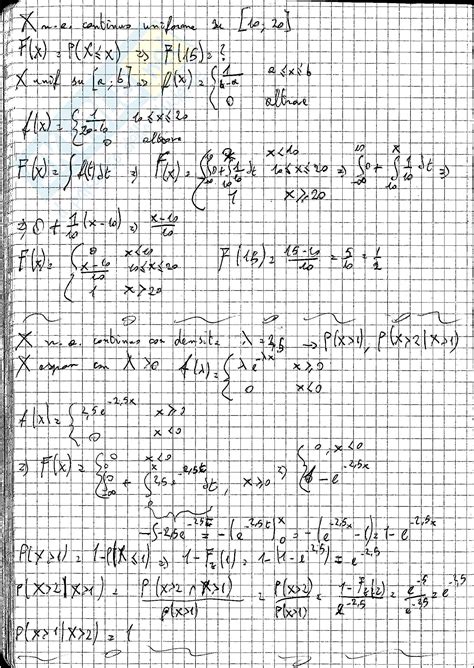 X v.a. continua uniforme su [10, 20]
F(x) = P(X ≤ x) ⇒ F(15) = ?
X unif su [a, b] ⇒ f(x) = { 1/(b-a) a ≤ x ≤ b
0 altrove
f(x) = { 1/(20-10) 10 ≤ x ≤ 20
0 altrove
F(x) = ∫ f(t) dt ⇒ F(x) = { 0 x < 10
∫0 + ∫ 1/10 dt 10 ≤ x ≤ 20 ⇒ ∫_{-∞}^{10} 0 + ∫_{10}^{x} 1/10 dt ⇒
1 x ≥ 20
⇒ 0 + 1/10 (x-10) ⇒ (x-10)/10
F(x) = { 0 x < 10
(x-10)/10 10 ≤ x ≤ 20 F(15) = (15-10)/10 = 5/10 = 1/2
1 x ≥ 20
X v.a. continua con densità λ = 2,5 → P(X>1), P(X>2|X>1)
X espon con λ > 0 f(λ) = { λ e^{-λx} x ≥ 0
0 x < 0
f(x) = { 2,5 e^{-2,5x} x ≥ 0
0 x < 0
⇒ F(x) = { 0 x < 0
∫ 0 + ∫ 2,5 e^{-2,5t} dt, x ≥ 0 ⇒ { 0, x < 0
1 - e^{-2,5x}
-∫ -2,5 e^{-2,5t} = -(e^{-2,5t})_0^x = -(e^{-2,5x} - 1) = 1 - e^{-2,5x}
P(X>1) = 1 - P(X ≤ 1) ⇒ 1 - F_x(1) = 1 - (1 - e^{-2,5}) = e^{-2,5}
P(X>2|X>1) = P(X>2 ∩ X>1)/P(X>1) = P(X>2)/P(X>1) = (1 - F_x(2))/e^{-2,5} = e^{-5}/e^{-2,5} = e^{-2,5}
P(X>1|X>2) = 1